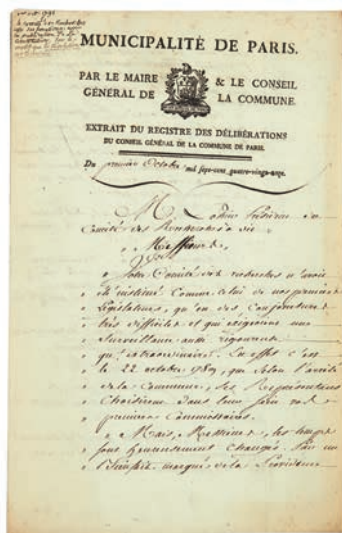 MUNICIPALITÉ DE PARIS.
PAR LE MAIRE & LE CONSEIL
GÉNÉRAL DE LA COMMUNE.
EXTRAIT DU REGISTRE DES DÉLIBÉRATIONS
DU CONSEIL GÉNÉRAL DE LA COMMUNE DE PARIS.
Du premier Octobre mil sept-cent quatre-vingt-onze
M. Président du
Comité des Recherches a dit
" Messieurs,
" Votre Comité des recherches n'avoit
" d'existence Comme celui de nos premiers
" Législateurs, qu'en des Conjonctures
" très difficiles et qui exigeoient une
" Surveillance aussi rigoureuse
" qu'extraordinaire. En effet c'est
" le 22 octobre 1789, que selon l'arrêté
" de la Commune, Ses Représentans
" Choisirent dans leur sein vos
" premiers Commissaires.
" Mais, Messieurs, les temps
" sont heureusement changés. Par un
" marqué de la Providence